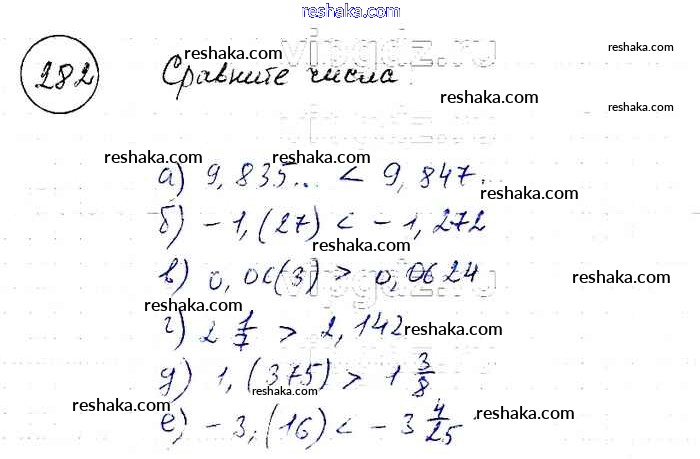 reshaka.com
282 Сравните числа
reshaka.com
reshaka.com
vipgdz.ru
reshaka.com
vipgdz.ru
reshaka.com
а) 9,835... < 9,847...
reshaka.com
б) -1,(27) < -1,272
reshaka.com
в) 0,06(3) > 0,0624
reshaka.com
vipgdz.ru
г) 2 1/7 > 2,142
reshaka.com
reshaka.com
д) 1,(375) > 1 3/8
reshaka.com
е) -3,(16) < -3 4/25
reshaka.com
reshaka.com